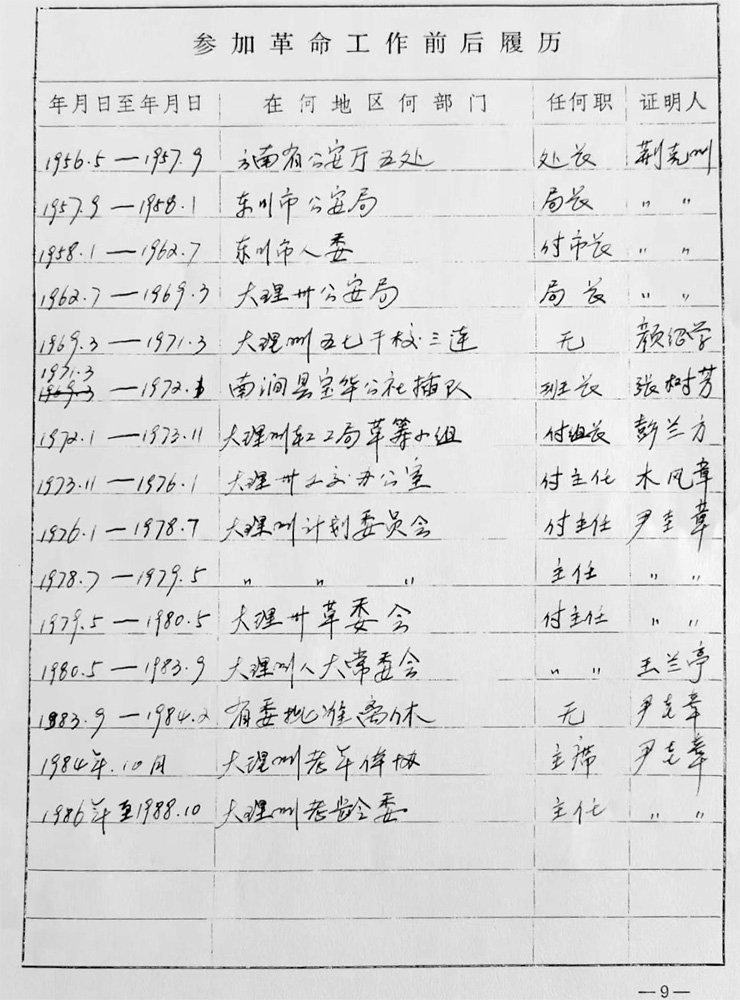 参加革命工作前后履历
年月日至年月日 在何地区何部门 任何职 证明人
1956.5—1957.9 云南省公安厅五处 处长 荆克州
1957.9—1958.1 东川市公安局 局长 〃 〃
1958.1—1962.7 东川市人委 付市长 〃 〃
1962.7—1969.3 大理州公安局 局长 〃 〃
1969.3—1971.3 大理州五七干校三连 无 颜继学
1971.3
1969.3—1972.1 南涧县宝华公社插队 班长 张树芳
1972.1—1973.11 大理州轻工局革筹小组 付组长 彭兰方
1973.11—1976.1 大理州工交办公室 付主任 木凤章
1976.1—1978.7 大理州计划委员会 付主任 尹奎章
1978.7—1979.5 〃 〃 〃 主任 〃 〃
1979.5—1980.5 大理州革委会 付主任 〃 〃
1980.5—1983.9 大理州人大常委会 〃 〃 王兰亭
1983.9—1984.2 省委批准离休 无 尹克章
1984年.10月 大理州老年体协 主席 尹克章
1986年至1988.10 大理州老龄委 主任 〃 〃
—9—